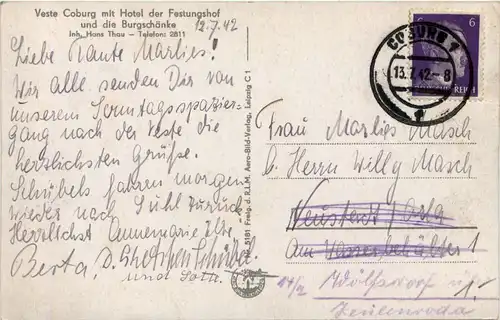 Veste Coburg mit Hotel der Festungshof
und die Burgschänke
Inh. Hans Thau — Telefon: 2811
12.7.42
Liebe Tante Marlies!
Wir alle senden Dir von
unserem Sonntagsspazier-
gang nach der Veste die
herzlichsten Grüße.
Schübels fahren morgen
wieder nach Suhl zurück.
Herzlichst Annemarie
Berta, Schübel
und Lotte.
5181 Freig. d. R.L.M. Aero-Bild-Verlag, Leipzig C 1
COBURG 1
13.7.42-8
6
6
REICH
Frau Marlies Masch
b. Herrn Willy Masch
Neustadt Orla
Am Wasserbehälter 1
Wolfsdorf üb.
Zeulenroda